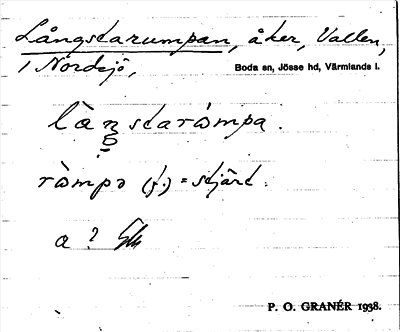 Långstarumpan, åker, Vallen,
i Nordsjö, Boda sn, Jösse hd, Värmlands l.
là̀ŋstarὼmpa.
rὼmpə (f.) = stjärt.
a?
P. O. GRANÉR 1938.